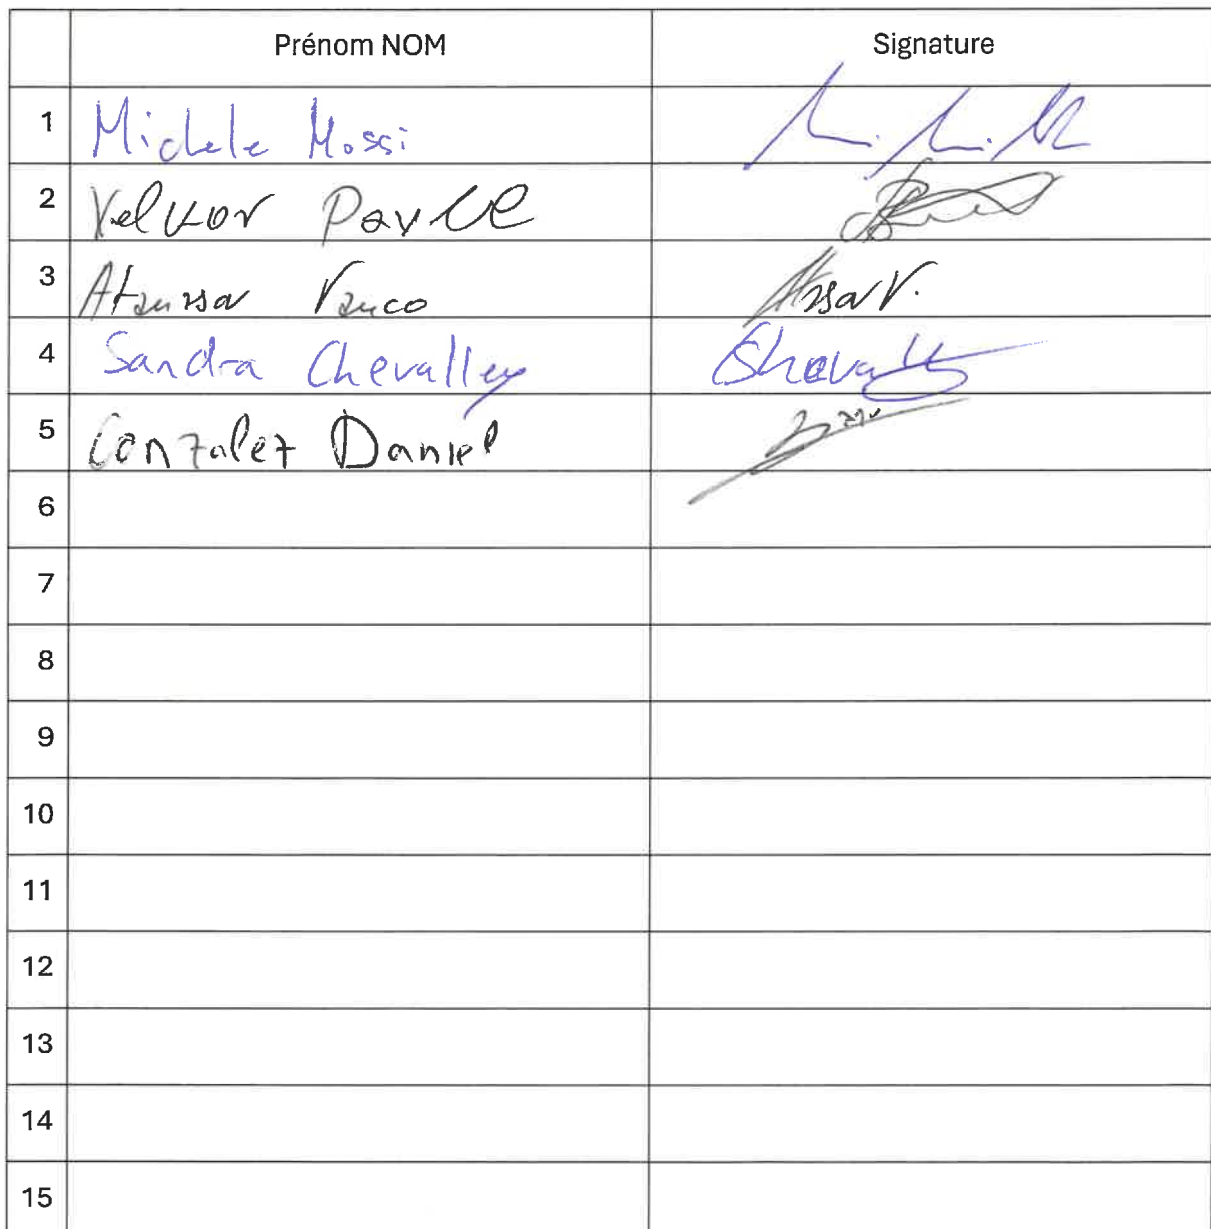 Prénom NOM Signature
1 Michele Mossi
2 Velkov Pavle
3 Vanco
4 Sandra Chevalley
5 Gonzalez Daniel
6
7
8
9
10
11
12
13
14
15